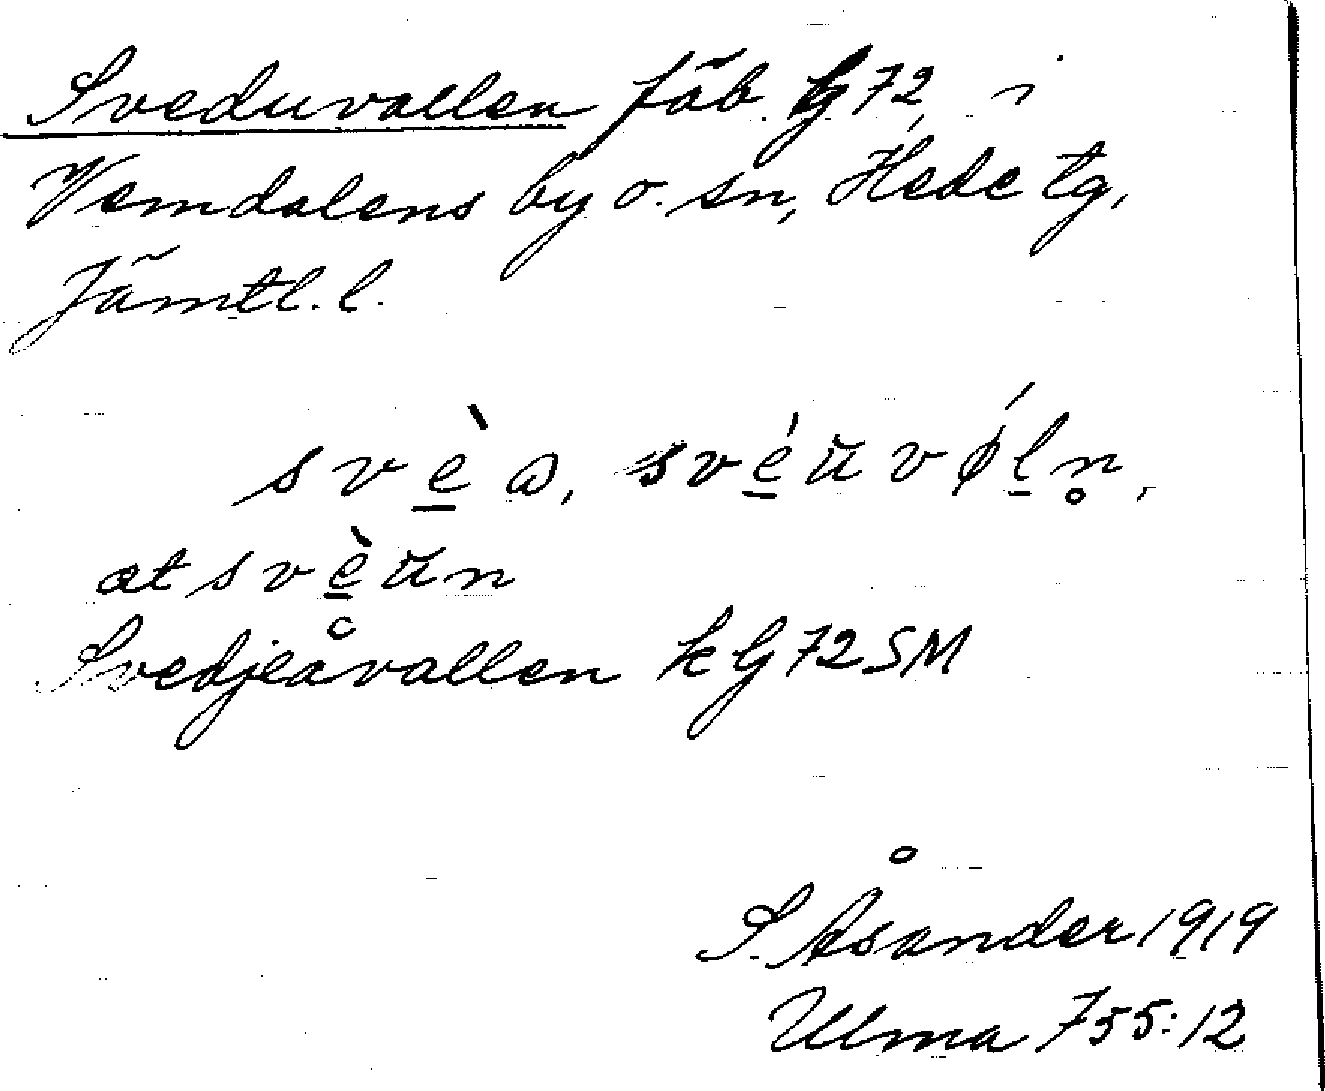 Sveduvallen fäb. G 72, i
Vemdalens by o. sn, Hede tg,
Jämtl. l.
svè̱ a, své̱ŭvǿḻn̥,
at svè̱ŭn
Svedjeåvallen k G 72 SM
S. Åsander 1919
Ulma 755:12